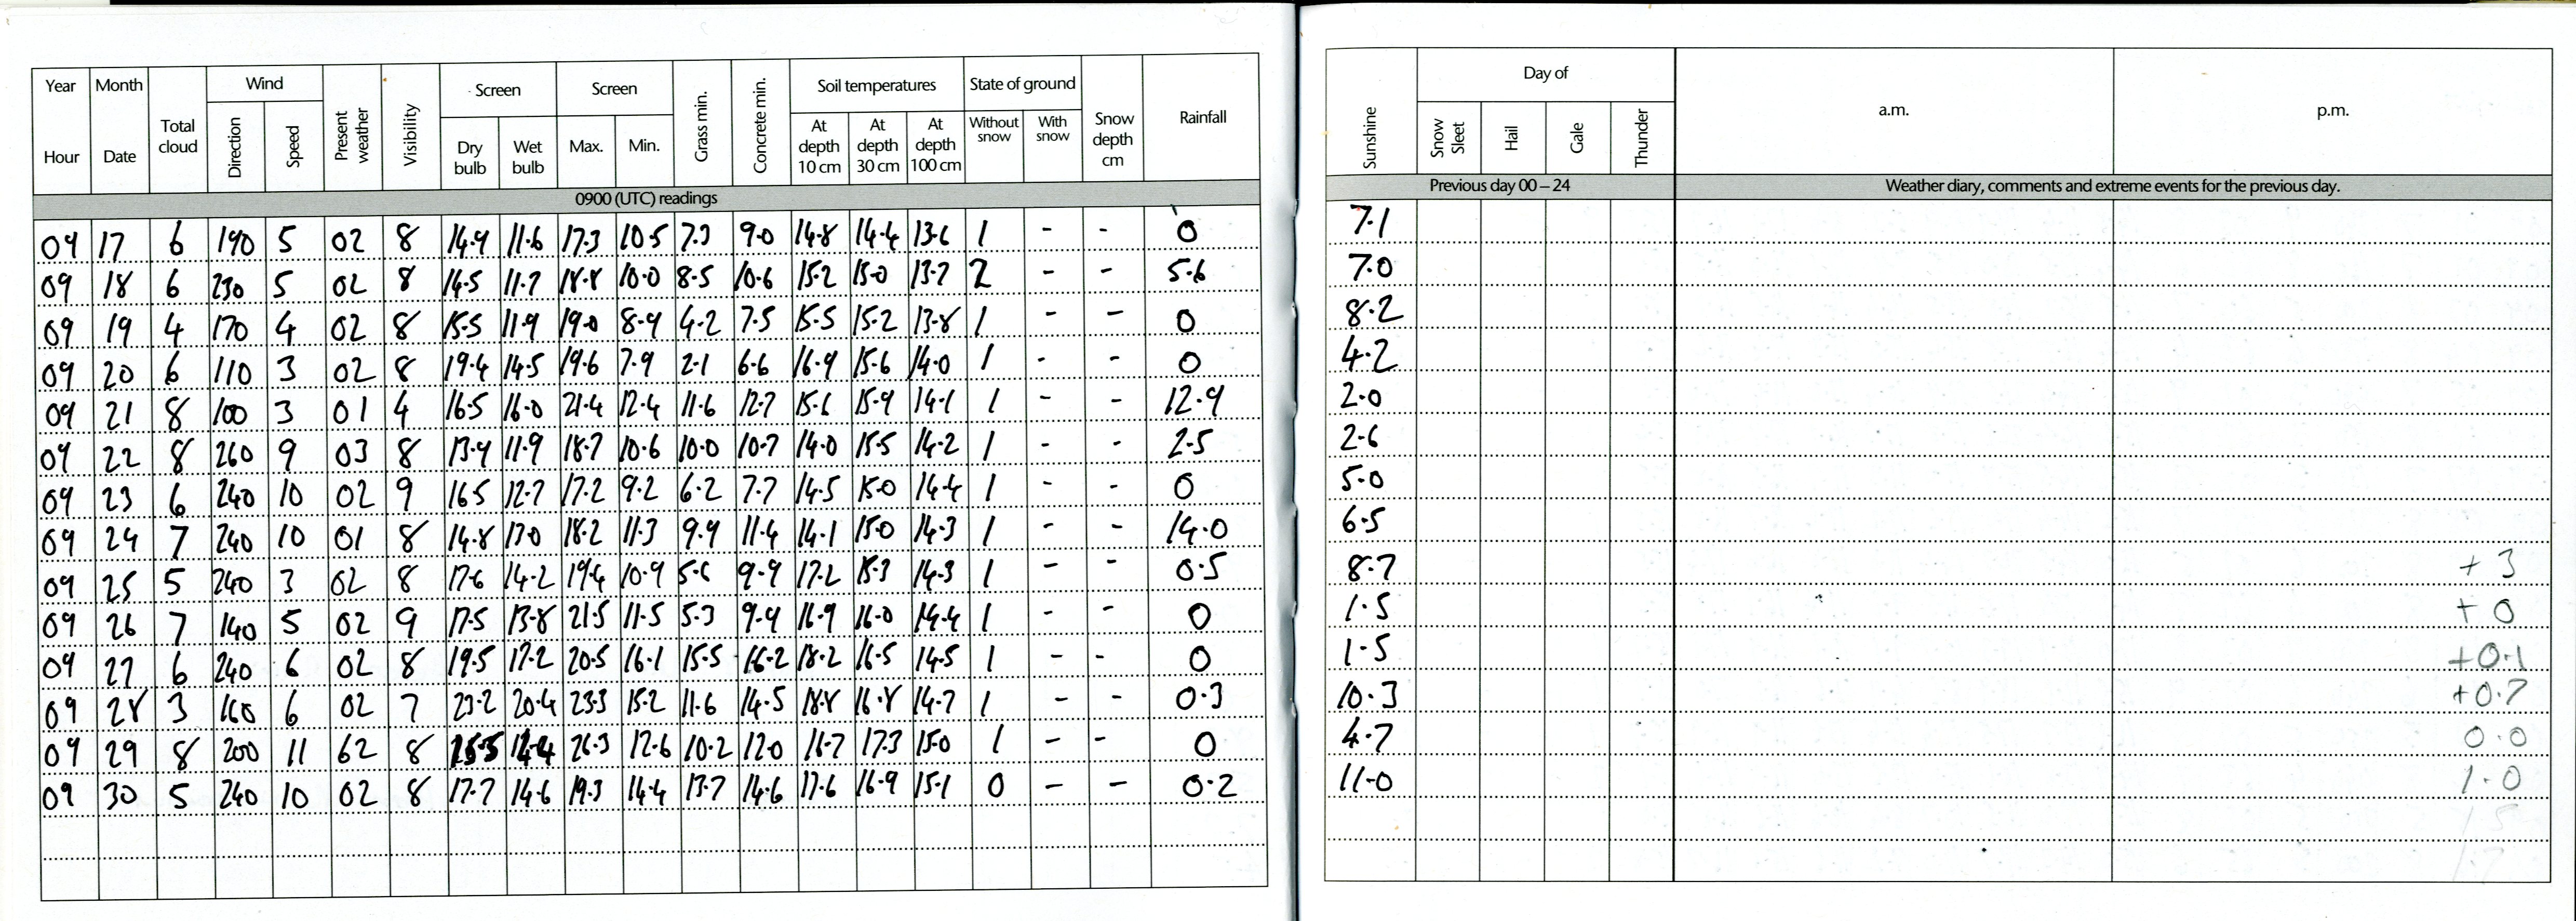 Year Month Total cloud Wind Present weather Visibility Screen Screen Grass min. Concrete min. Soil temperatures State of ground Snow depth cm Rainfall
Hour Date Direction Speed Dry bulb Wet bulb Max. Min. At depth 10 cm At depth 30 cm At depth 100 cm Without snow With snow
0900 (UTC) readings
09 17 6 190 5 02 8 14.9 11.6 17.3 10.5 7.3 9.0 14.8 14.4 13.6 1 - - 0
09 18 6 230 5 02 8 14.5 11.7 18.8 10.0 8.5 10.6 15.2 15.0 13.7 2 - - 5.6
09 19 4 170 4 02 8 15.5 11.9 19.0 8.9 4.2 7.5 15.5 15.2 13.8 1 - - 0
09 20 6 110 3 02 8 19.4 14.5 19.6 7.9 2.1 6.6 16.9 15.6 14.0 1 - - 0
09 21 8 100 3 01 4 16.5 16.0 21.4 12.4 11.6 12.7 15.6 15.9 14.1 1 - - 12.9
09 22 8 260 9 03 8 13.9 11.9 18.7 10.6 10.0 10.7 14.0 15.5 14.2 1 - - 2.5
09 23 6 240 10 02 9 16.5 12.7 17.2 9.2 6.2 7.7 14.5 15.0 14.4 1 - - 0
09 24 7 240 10 01 8 14.8 13.0 18.2 11.3 9.9 11.4 14.1 15.0 14.3 1 - - 14.0
09 25 5 240 3 02 8 17.6 14.2 19.4 10.9 5.6 9.9 17.2 15.3 14.3 1 - - 0.5
09 26 7 140 5 02 9 17.5 13.8 21.5 11.5 5.3 9.9 16.9 16.0 14.4 1 - - 0
09 27 6 240 6 02 8 19.5 17.2 20.5 16.1 15.5 16.2 18.2 16.5 14.5 1 - - 0
09 28 3 160 6 02 7 23.2 20.4 23.3 15.2 11.6 14.5 18.8 16.8 14.7 1 - - 0.3
09 29 8 200 11 62 8 26.3 12.6 10.2 12.0 16.7 17.3 15.0 1 - - 0
09 30 5 240 10 02 8 17.7 14.6 19.3 14.4 13.7 14.6 17.6 16.9 15.1 0 - - 0.2
Sunshine Day of a.m. p.m.
Snow Sleet Hail Gale Thunder
Previous day 00 – 24 Weather diary, comments and extreme events for the previous day.
7.1
7.0
8.2
4.2
2.0
2.6
5.0
6.5
8.7 + 3
1.5 + 0
1.5 +0.1
10.3 +0.7
4.7 0.0
11.0 1.0